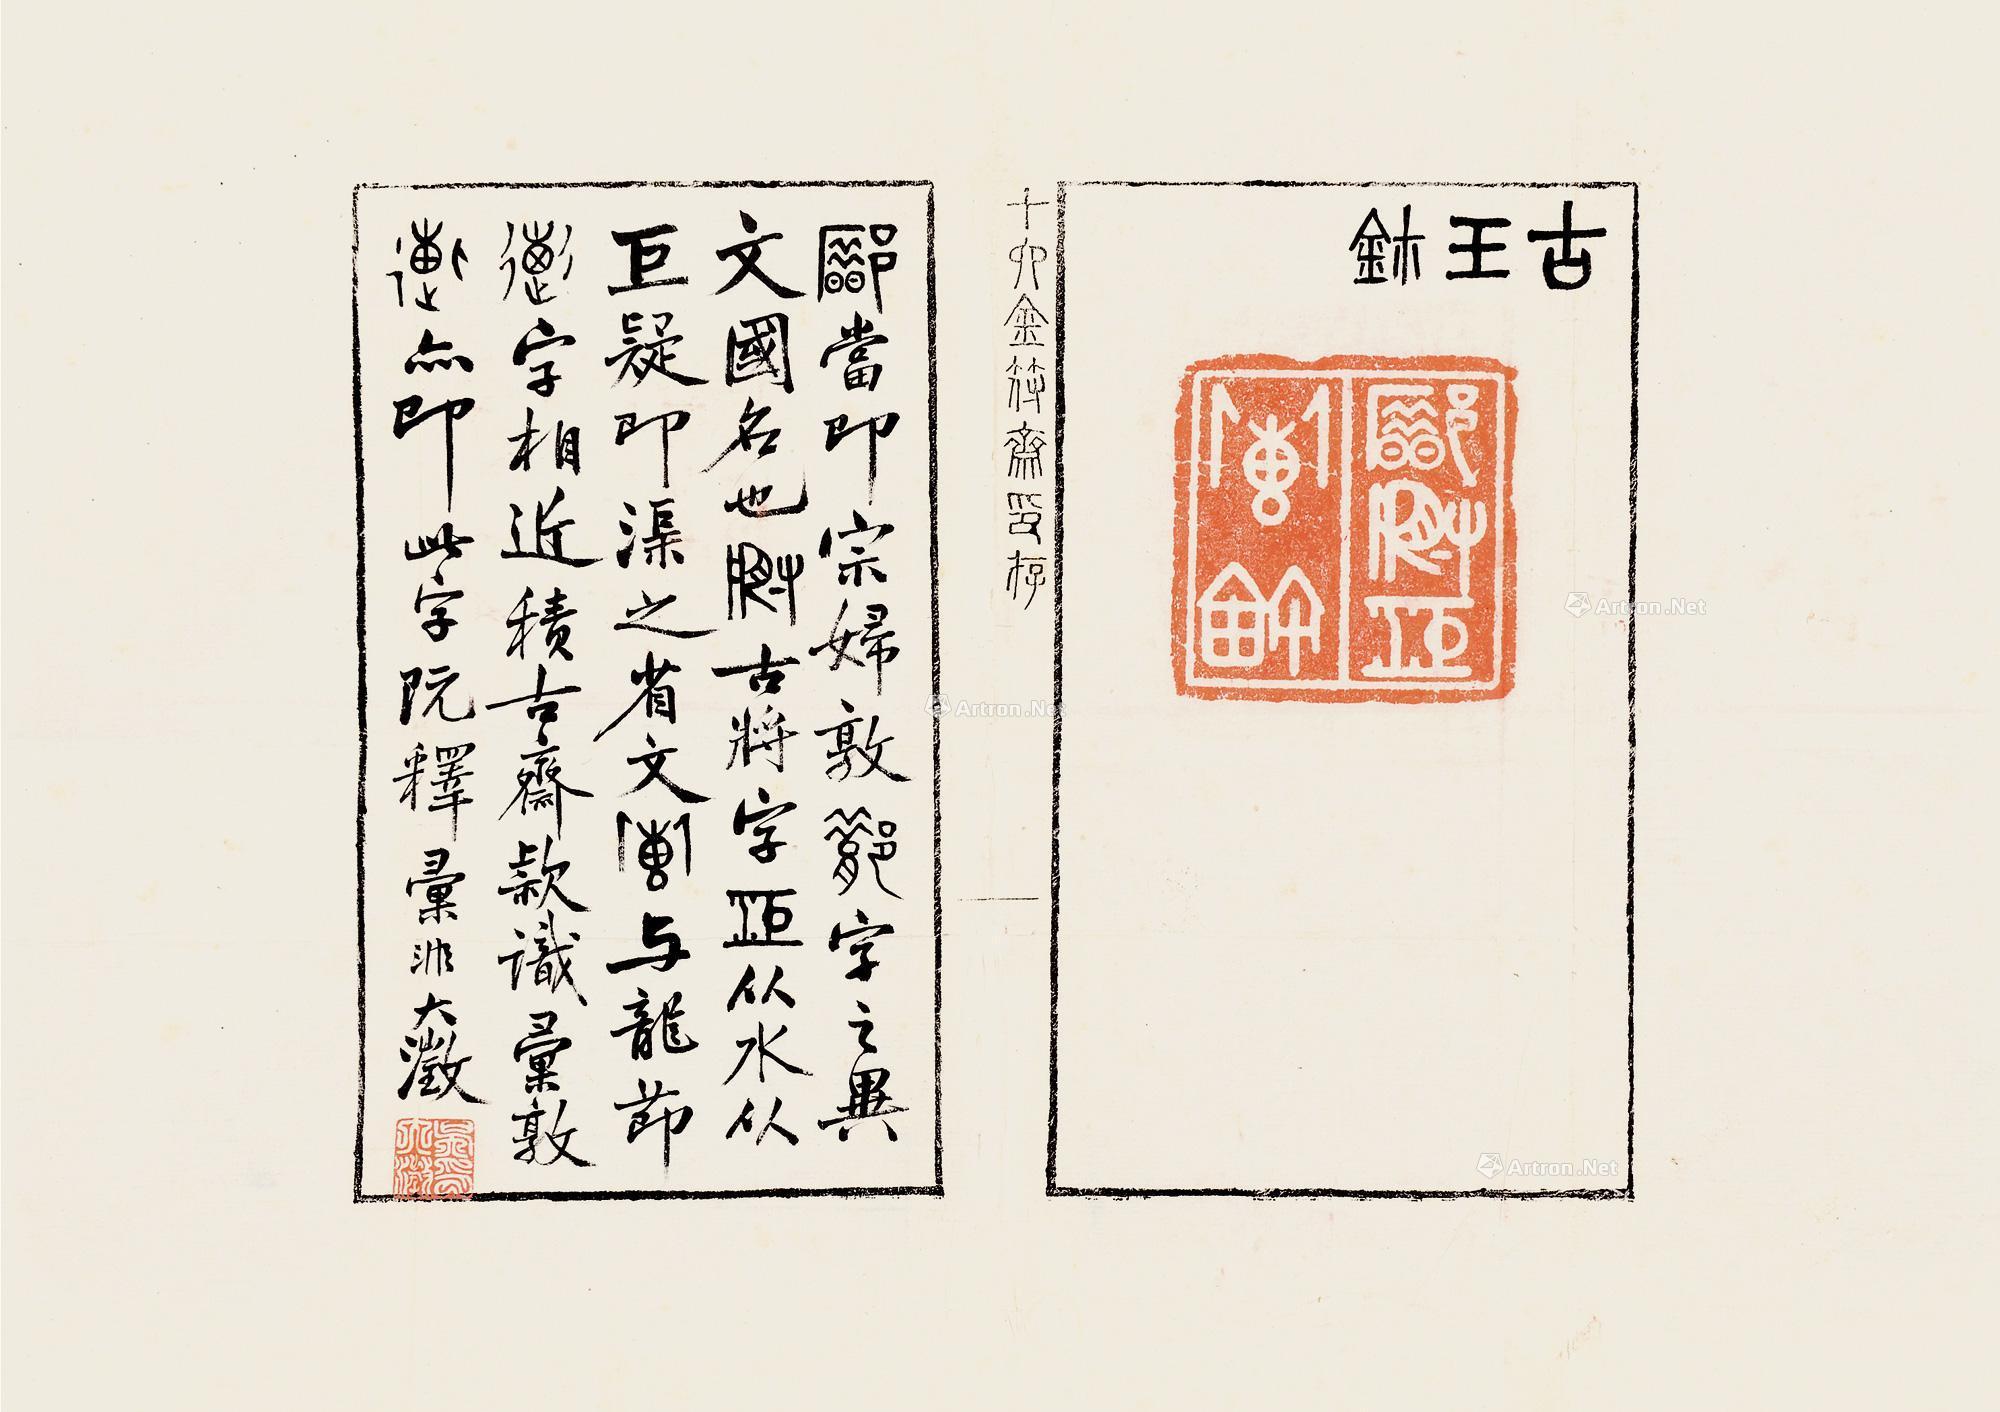 古王鉨
十六金符齋印存
當即宗婦敦字之異
文國名也古將字从水从
巨疑即渠之省文与龍節
字相近積古齋款識彙敦
亦即此字阮釋彙非大澂
Artron.Net
Artron.Net
Artron.Net